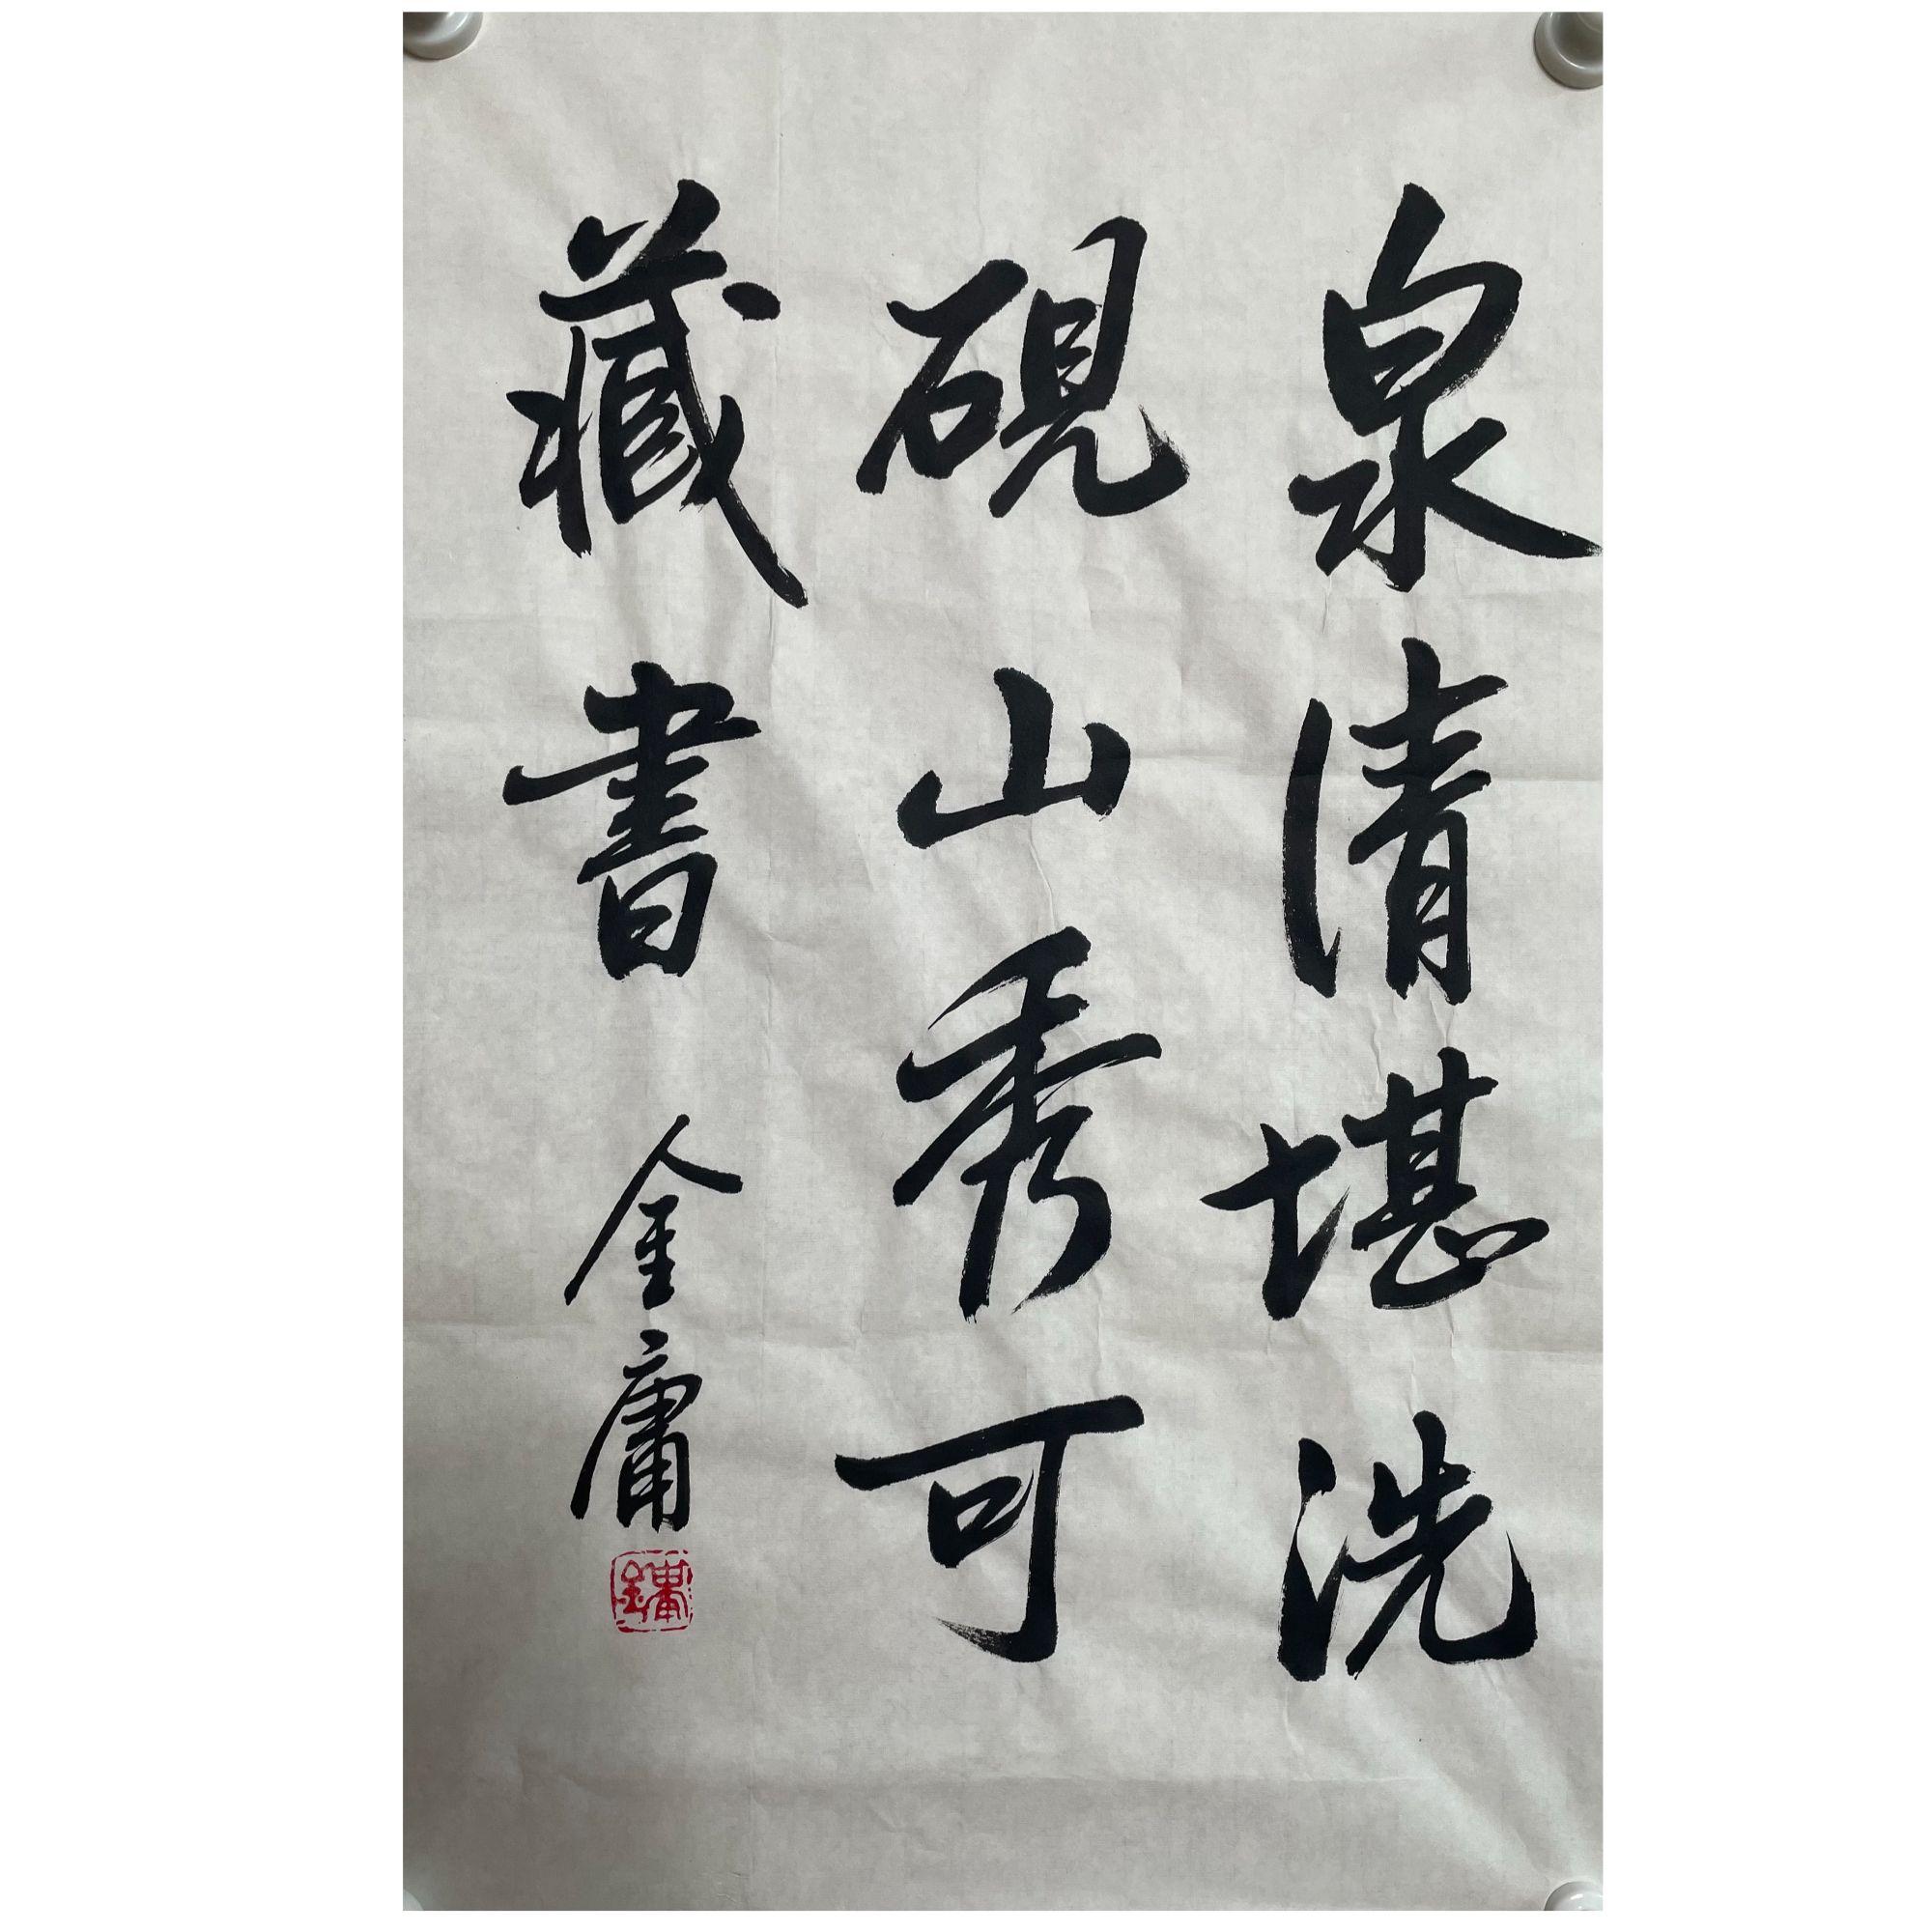 泉清堪洗
硯山秀可
藏書 金庸
金庸